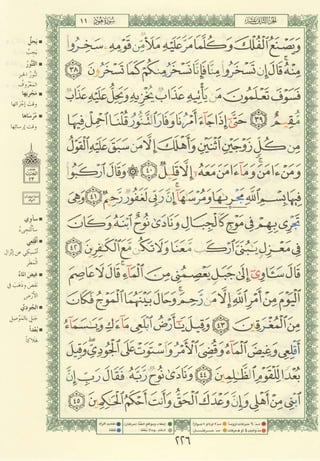 الجزء الثاني عشر سورة هود ١١
وَيَصْنَعُ ٱلْفُلْكَ وَكُلَّمَا مَرَّ عَلَيْهِ مَلَأٌ مِّن قَوْمِهِۦ سَخِرُوا۟
مِنْهُ قَالَ إِن تَسْخَرُوا۟ مِنَّا فَإِنَّا نَسْخَرُ مِنكُمْ كَمَا تَسْخَرُونَ ٣٨
فَسَوْفَ تَعْلَمُونَ مَن يَأْتِيهِ عَذَابٌ يُخْزِيهِ وَيَحِلُّ عَلَيْهِ عَذَابٌ
مُّقِيمٌ ٣٩ حَتَّىٰٓ إِذَا جَآءَ أَمْرُنَا وَفَارَ ٱلتَّنُّورُ قُلْنَا ٱحْمِلْ فِيهَا
مِن كُلٍّ زَوْجَيْنِ ٱثْنَيْنِ وَأَهْلَكَ إِلَّا مَن سَبَقَ عَلَيْهِ ٱلْقَوْلُ
وَمَنْ ءَامَنَ وَمَآ ءَامَنَ مَعَهُۥٓ إِلَّا قَلِيلٌ ٤٠ ۞ وَقَالَ ٱرْكَبُوا۟
فِيهَا بِسْمِ ٱللَّهِ مَجْر۪ىٰهَا وَمُرْسَىٰهَآ إِنَّ رَبِّى لَغَفُورٌ رَّحِيمٌ ٤١ وَهِىَ
تَجْرِى بِهِمْ فِى مَوْجٍ كَٱلْجِبَالِ وَنَادَىٰ نُوحٌ ٱبْنَهُۥ وَكَانَ
فِى مَعْزِلٍ يَـٰبُنَىَّ ٱرْكَب مَّعَنَا وَلَا تَكُن مَّعَ ٱلْكَـٰفِرِينَ ٤٢
قَالَ سَـَٔاوِىٓ إِلَىٰ جَبَلٍ يَعْصِمُنِى مِنَ ٱلْمَآءِ قَالَ لَا عَاصِمَ
ٱلْيَوْمَ مِنْ أَمْرِ ٱللَّهِ إِلَّا مَن رَّحِمَ وَحَالَ بَيْنَهُمَا ٱلْمَوْجُ فَكَانَ
مِنَ ٱلْمُغْرَقِينَ ٤٣ وَقِيلَ يَـٰٓأَرْضُ ٱبْلَعِى مَآءَكِ وَيَـٰسَمَآءُ
أَقْلِعِى وَغِيضَ ٱلْمَآءُ وَقُضِىَ ٱلْأَمْرُ وَٱسْتَوَتْ عَلَى ٱلْجُودِىِّ وَقِيلَ
بُعْدًا لِّلْقَوْمِ ٱلظَّـٰلِمِينَ ٤٤ وَنَادَىٰ نُوحٌ رَّبَّهُۥ فَقَالَ رَبِّ إِنَّ
ٱبْنِى مِنْ أَهْلِى وَإِنَّ وَعْدَكَ ٱلْحَقُّ وَأَنتَ أَحْكَمُ ٱلْحَـٰكِمِينَ ٤٥
يَحِلُّ
يجبُ
التَّنُّورُ
مجريها
وقت إجرائها
مُرساها
وقت إرسائها
سآوي
أقلعي
غيض الماء
الجوديّ
جبل بالموصل
بُعدًا
هلاكًا
٢٢٦